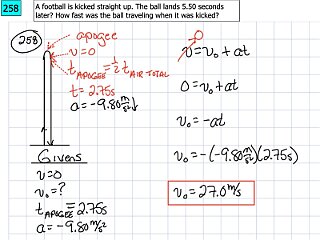 258
A football is kicked straight up. The ball lands 5.50 seconds
later? How fast was the ball traveling when it was kicked?
258
apogee
v=0
t APOGEE = ½ t AIR TOTAL
t = 2.75s
a = -9.80 m/s² ↓
Givens
v=0
v₀=?
t APOGEE = 2.75s
a = -9.80 m/s²
0
v = v₀ + at
0 = v₀ + at
v₀ = -at
v₀ = -(-9.80 m/s²)(2.75s)
v₀ = 27.0 m/s